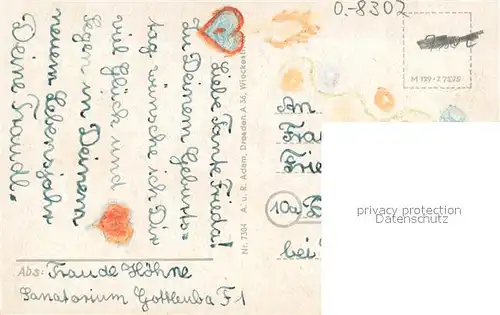 0.-8302
M 129 · Z 7575
Liebe Tante Frieda!
Zu Deinem Geburts=
tag wünsche ich Dir
viel Glück und
Segen in Deinem
neuem Lebensjahr
Deine Traudl.
Nr. 7304 A. u. R. Adam, Dresden A 36, Wieckestr.
An
Frie
10a
bei
privacy protection
copyright
Abs: Traude Höhne
Sanatorium Gottleuba F1